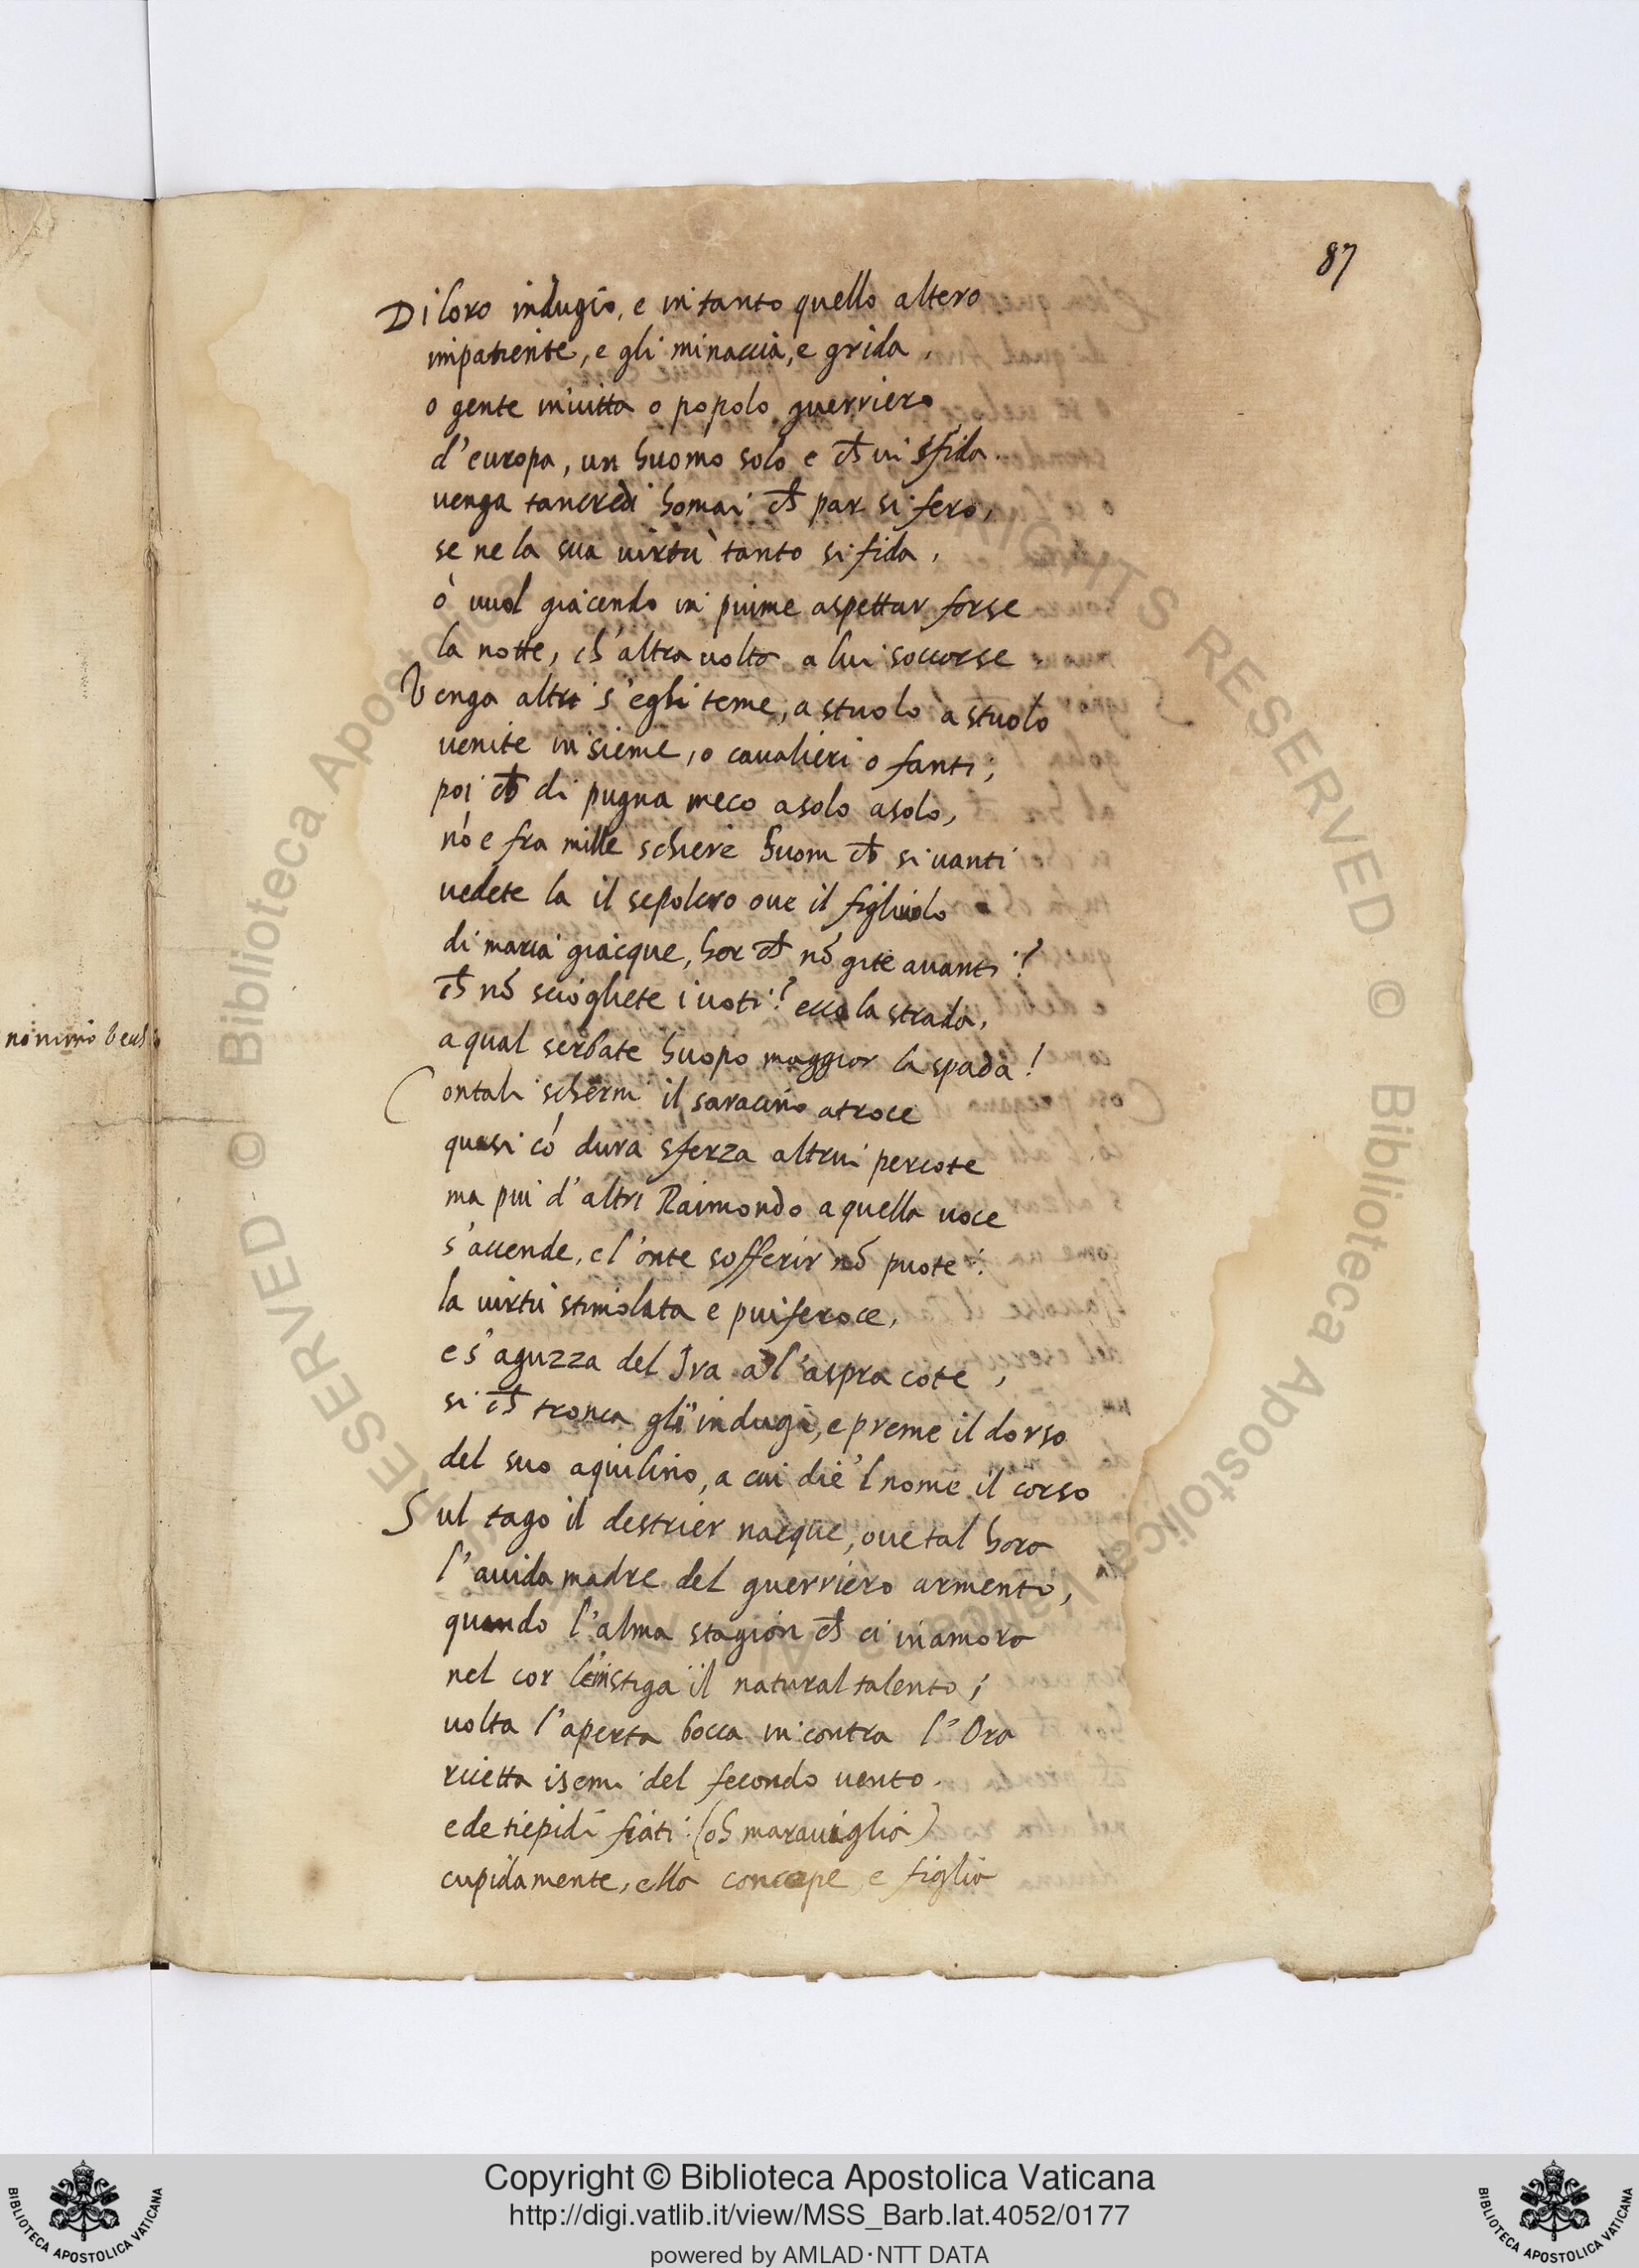 87
Di loro indugio, e in tanto quello altero
impatiente, e gli minaccia, e grida,
o gente inuitta o popolo guerriero
d'europa, un huomo solo e ch̃ vi sfida.
uenga tancredi homai ch̃ par si fero,
se ne la sua uirtù tanto si fida,
ò vuol giacendo in piume aspettar forse
la notte, ch'altra uolta a lui soccorse
Venga altri s'egli teme, a stuolo a stuolo
uenite insieme, o cavalieri o fanti;
poi ch̃ di pugna meco asolo asolo,
nó e fra mille schiere huom ch̃ si uanti
vedete la il sepolcro oue il figliuolo
di maria giacque, hor ch̃ nõ gite auanti?
ch̃ nõ sciogliete i uoti? ecco la strada,
a qual serbate huopo maggior la spada!
Contali schermi il saracino atroce
quasi có dura sferza altrui percote
ma piu d'altri Raimondo a quella uoce
s'accende, e l'onte sofferir nõ puote:
la uirtù stimolata e piu feroce,
e s'aguzza del Ira al'aspra cote,
si ch̃ tronca gli indugi, e preme il dorso
del suo aquilino, a cui die'l nome il corso
Sul tago il destrier nacque, oue tal hora
l'auida madre del guerriero armento,
quando l'alma stagion ch̃ ci inamora
nel cor l'instiga il natural talento;
uolta l'aperta bocca in contra l'Ora
ricetta i semi del fecondo uento.
e de tiepidi fiati (oh marauiglia)
cupidamente, ella concepe e figlia
Copyright © Biblioteca Apostolica Vaticana
http://digi.vatlib.it/view/MSS_Barb.lat.4052/0177
powered by AMLAD·NTT DATA
BIBLIOTECA APOSTOLICA VATICANA
BIBLIOTECA APOSTOLICA VATICANA